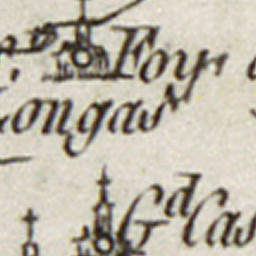 Foy
Congas
Gd Cas